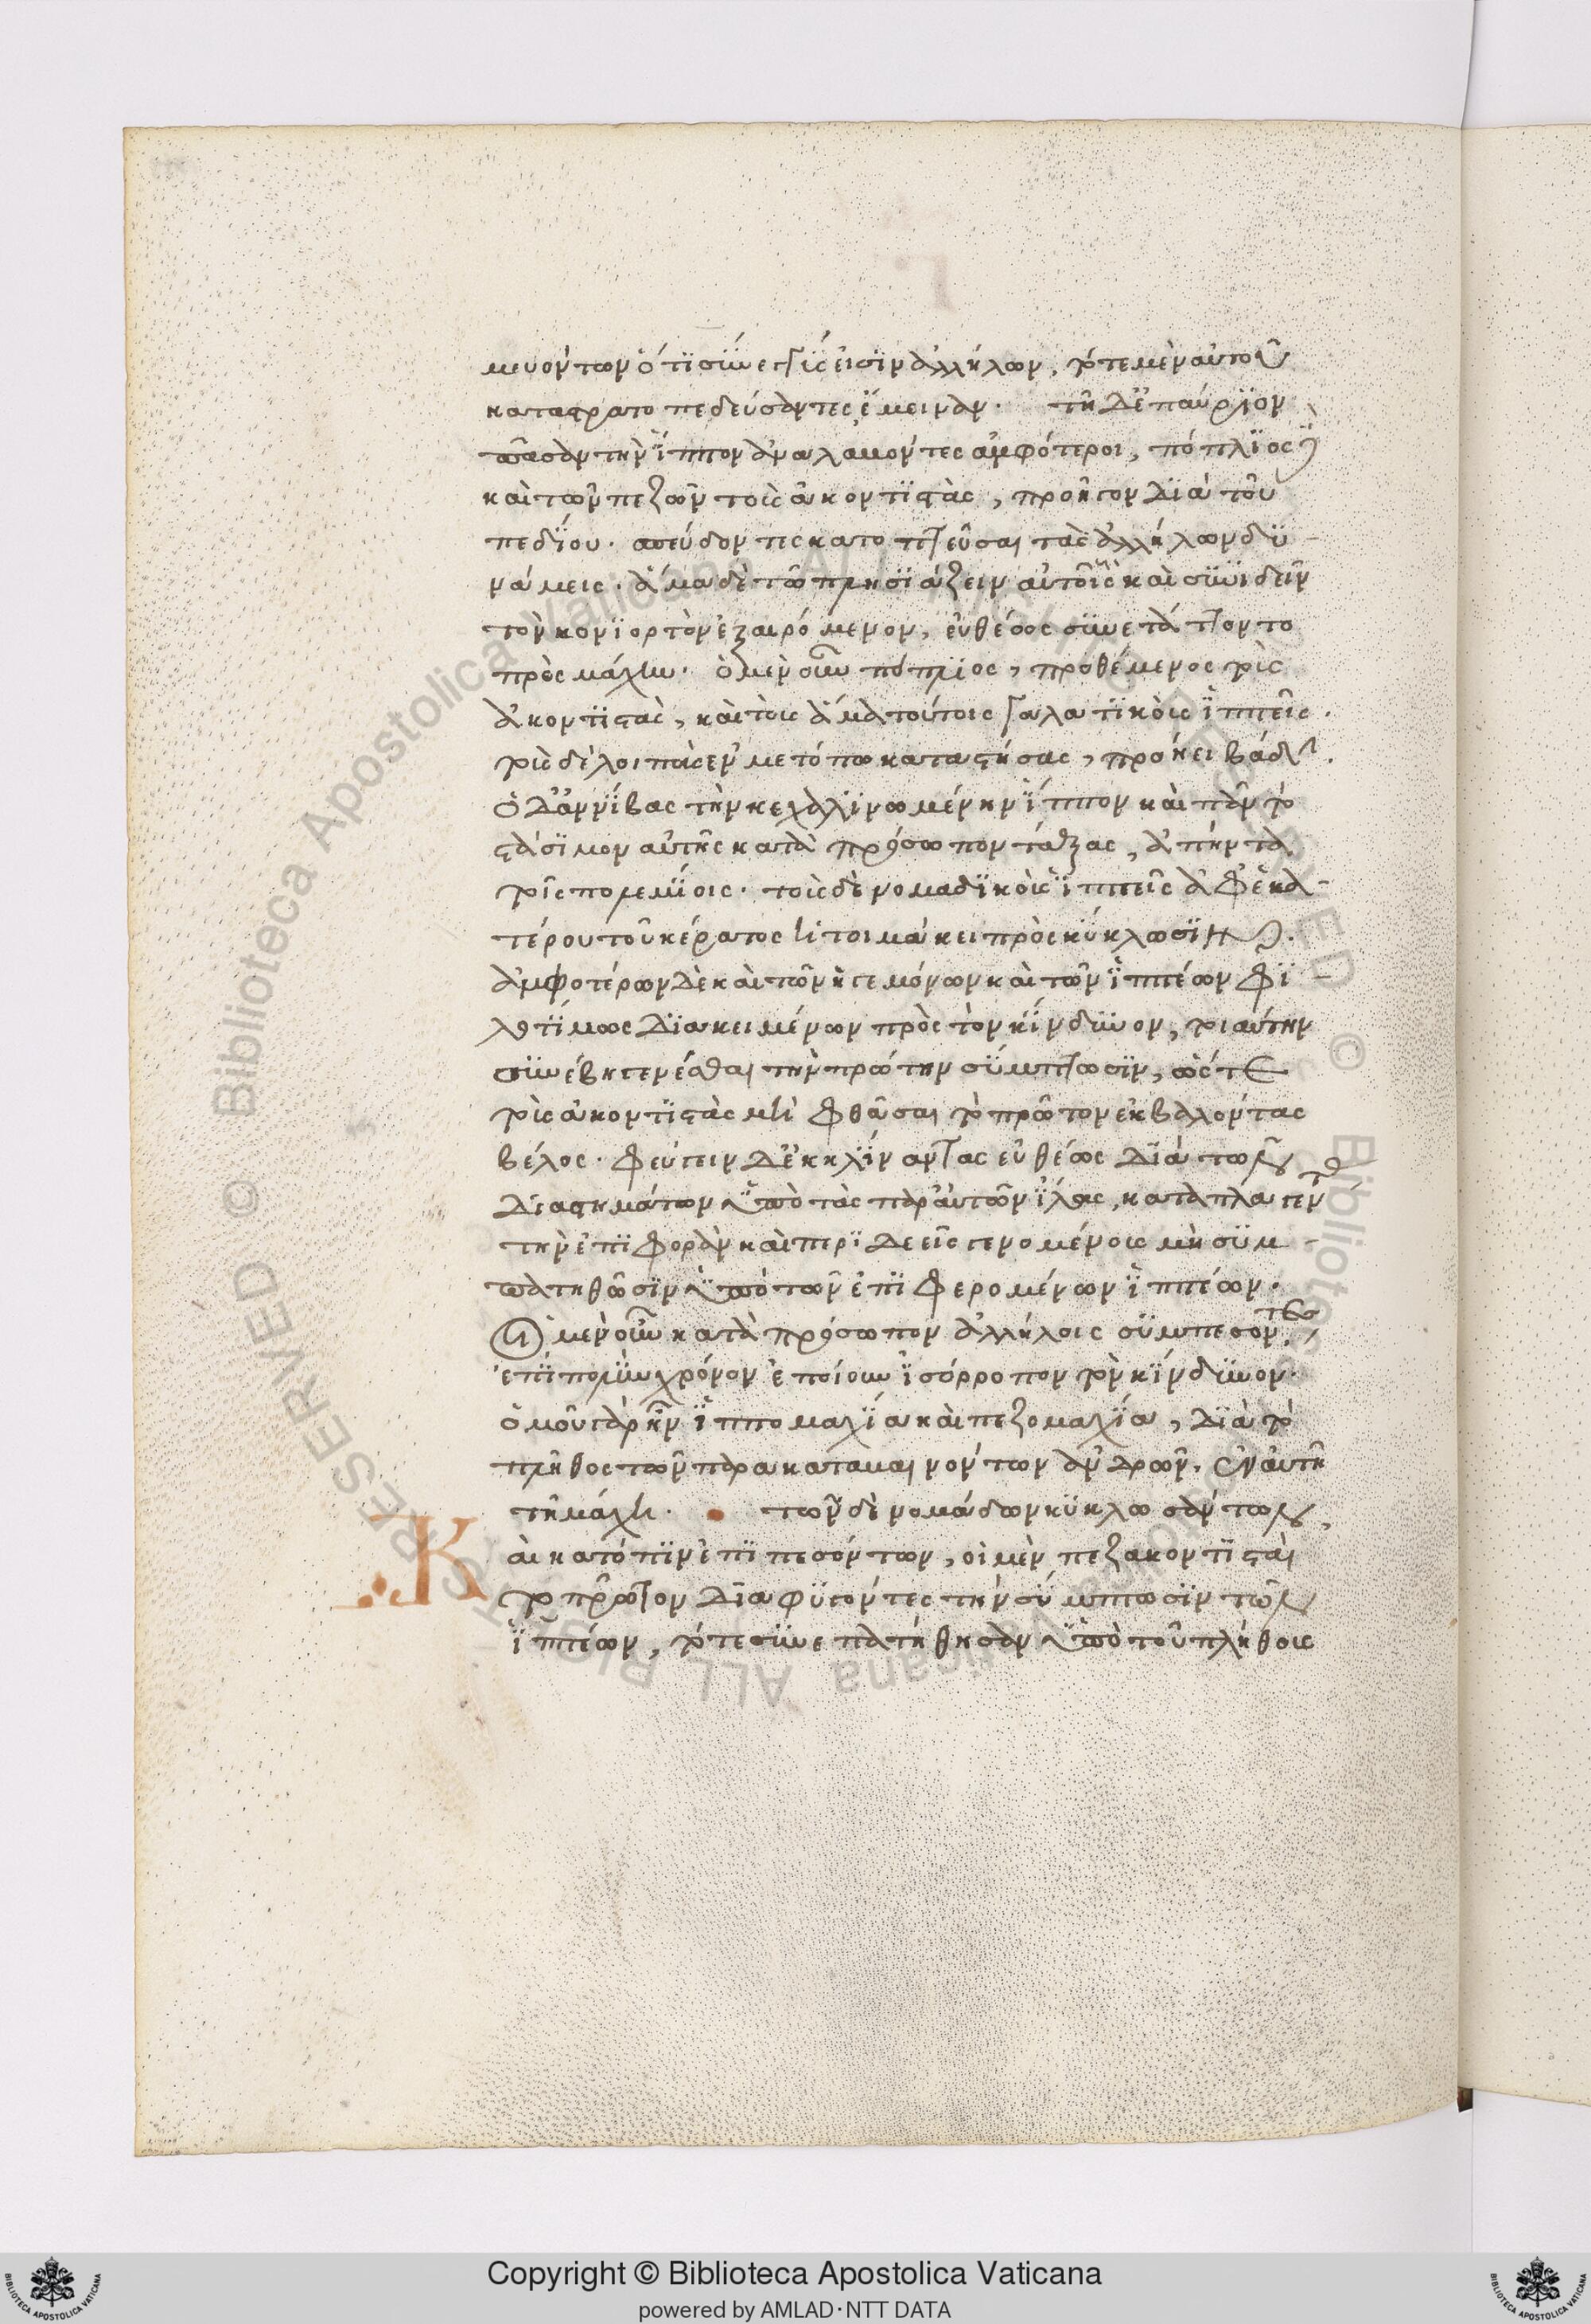 μευόντων ὅτι σύνεγγύς εἰσιν ἀλλήλων, τότε μὲν αὐτοῦ
καταστρατοπεδεύσαντες ἔμειναν. τῇ δ' ἐπαύριον
πᾶσαν τὴν ἵππον ἀναλαβόντες ἀμφότεροι, πόπλιος δὲ
καὶ τῶν πεζῶν τοὺς ἀκοντιστὰς, προῆγον διὰ τοῦ
πεδίου. σπεύδοντες κατοπτεῦσαι τὰς ἀλλήλων δυ
νάμεις. ἅμα δὲ τῶ πλησιάζειν αὐτοῖς καὶ συνιδεῖν
τὸν κονιορτὸν ἐξαιρόμενον, εὐθέως συνετάττοντο
πρὸς μάχην. ὁ μὲν οὖν πόπλιος, προθέμενος τοὺς
ἀκοντιστὰς, καὶ τοὺς ἅμα τούτοις γαλατικοὺς ἱππεῖς.
τοὺς δὲ λοιποὺς ἐν μετόπω καταστήσας, προήει βάδην.
ὁ δ' ἀννίβας τὴν κεχαλινωμένην ἵππον καὶ πᾶν τὸ
στάσιμον αὐτῆς κατὰ πρόσωπον τάξας, ἀπήντα
τοῖς πολεμίοις. τοὺς δὲ νομαδικοὺς ἱππεῖς ἀφ' ἑκα-
τέρου τοῦ κέρατος ἡτοιμάκει πρὸς κύκλωσιν.
ἀμφοτέρων δὲ καὶ τῶν ἡγεμόνων καὶ τῶν ἱππέων φι-
λοτίμως διακειμένων πρὸς τὸν κίνδυνον, τοιαύτην
συνέβη γενέσθαι τὴν πρώτην σύμπτωσιν, ὥστε
τοὺς ἀκοντιστὰς μὴ φθᾶσαι τὸ πρῶτον ἐκβαλόντας
βέλος. φεύγειν δ' ἐκκλίναντας εὐθέως διὰ τῶν
διαστημάτων ὑπὸ τὰς παρ' αὐτῶν ἴλας, καταπλαγέντας
τὴν ἐπιφορὰν καὶ περιδεεῖς γενομένους μὴ συμ-
πατηθῶσιν ὑπὸ τῶν ἐπιφερομένων ἱππέων.
Οἱ μὲν οὖν κατὰ πρόσωπον ἀλλήλοις συμπεσόντες,
ἐπὶ πολὺν χρόνον ἐποίουν ἰσόρροπον τὸν κίνδυνον.
ὁμοῦ γὰρ ἦν ἱππομαχία καὶ πεζομαχία, διὰ τὸ
πλῆθος τῶν παρακαταβαινόντων ἀνδρῶν. ἐν αὐτῆ
τῆ μάχη. τῶν δὲ νομάδων κυκλωσάντων,
Κ αὶ κατόπιν ἐπιπεσόντων, οἱ μὲν πεζακοντισταὶ
τὸ πρῶτον διαφυγόντες τὴν σύμπτωσιν τῶν
ἱππέων, τότε συνεπατήθησαν ὑπὸ τοῦ πλήθους
Copyright © Biblioteca Apostolica Vaticana
powered by AMLAD·NTT DATA